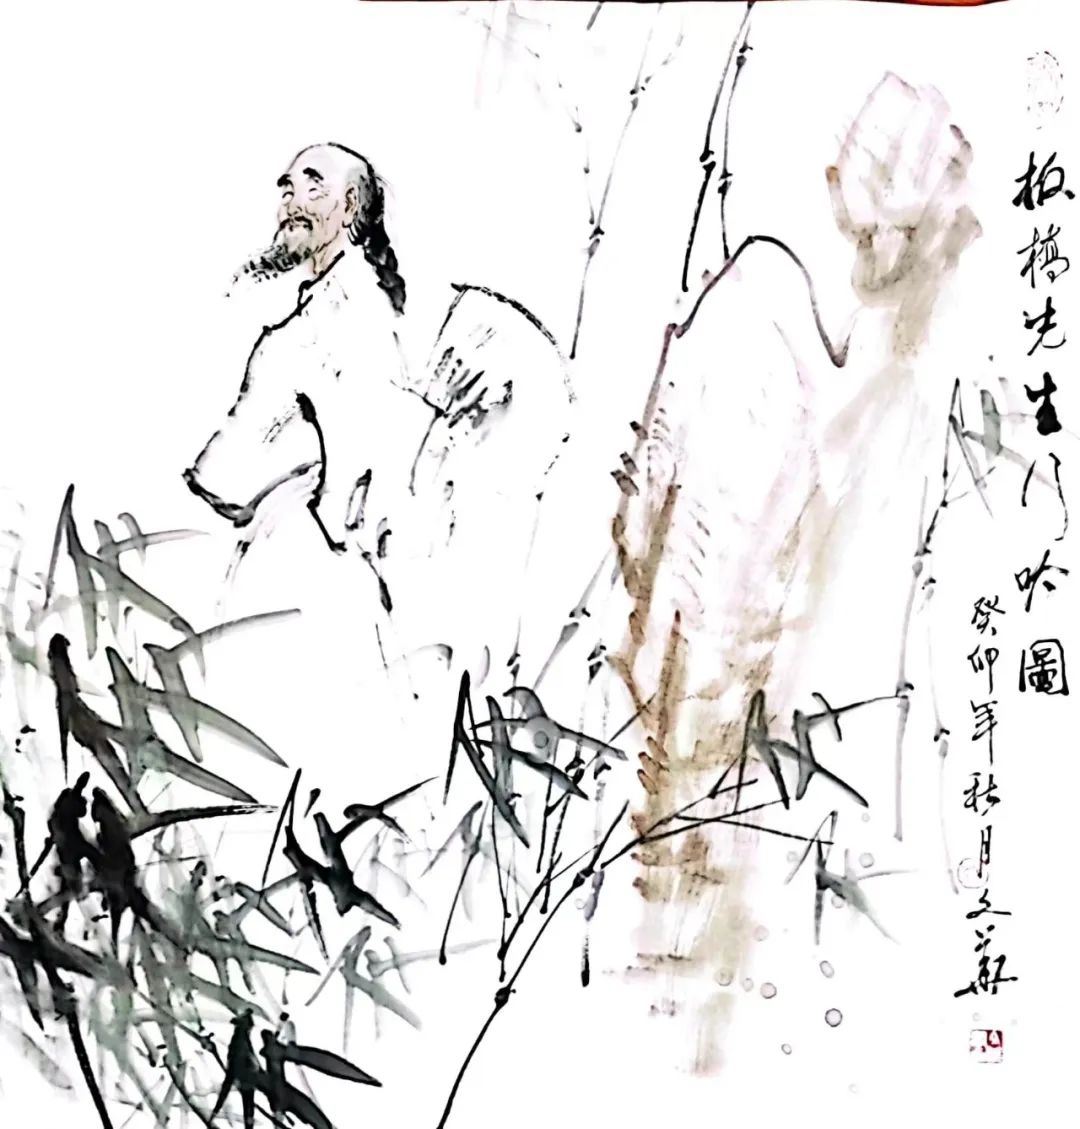 板橋先生行吟圖
癸卯年秋月文